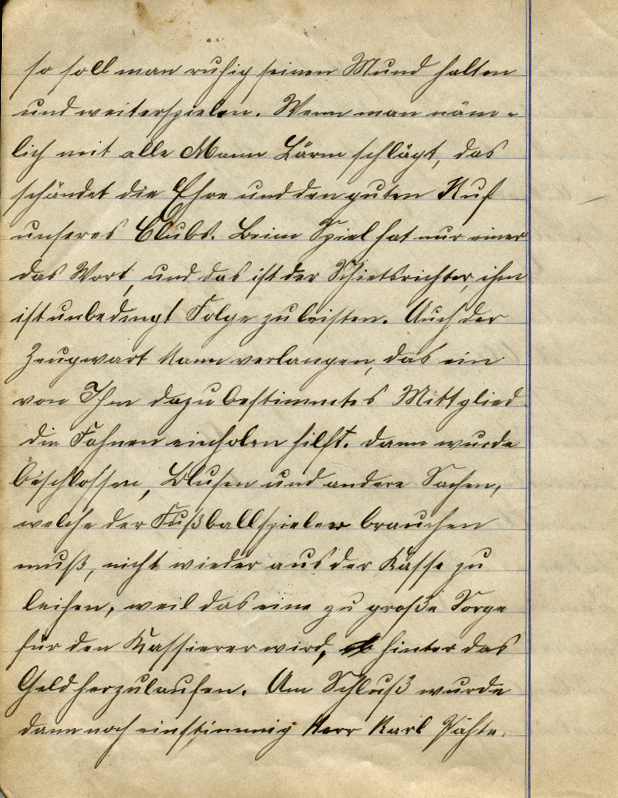 so soll man ruhig seinen Mund halten
und weiterspielen. Wenn man näm-
lich mit alle Mann Lärm schlägt, das
schändet die Ehre und den guten Ruf
unseres Clubs. Beim Spiel hat nur einer
das Wort, und das ist der Schietsrichter, ihm
ist unbedingt Folge zu leisten. Auch der
Zeugwart kann verlangen, das ein
von Ihm dazu bestimmtes Mittglied
die Fahnen einholen hilft. Dann wurde
beschlossen, Blusen und andere Sachen,
welche der Fußballspieler brauchen
muß, nicht wieder aus der Kasse zu
leihen, weil das eine zu große Sorge
für den Kassierer wird, hinter das
Geld herzulaufen. Am Schluß wurde
dann noch einstimmig Herr Karl